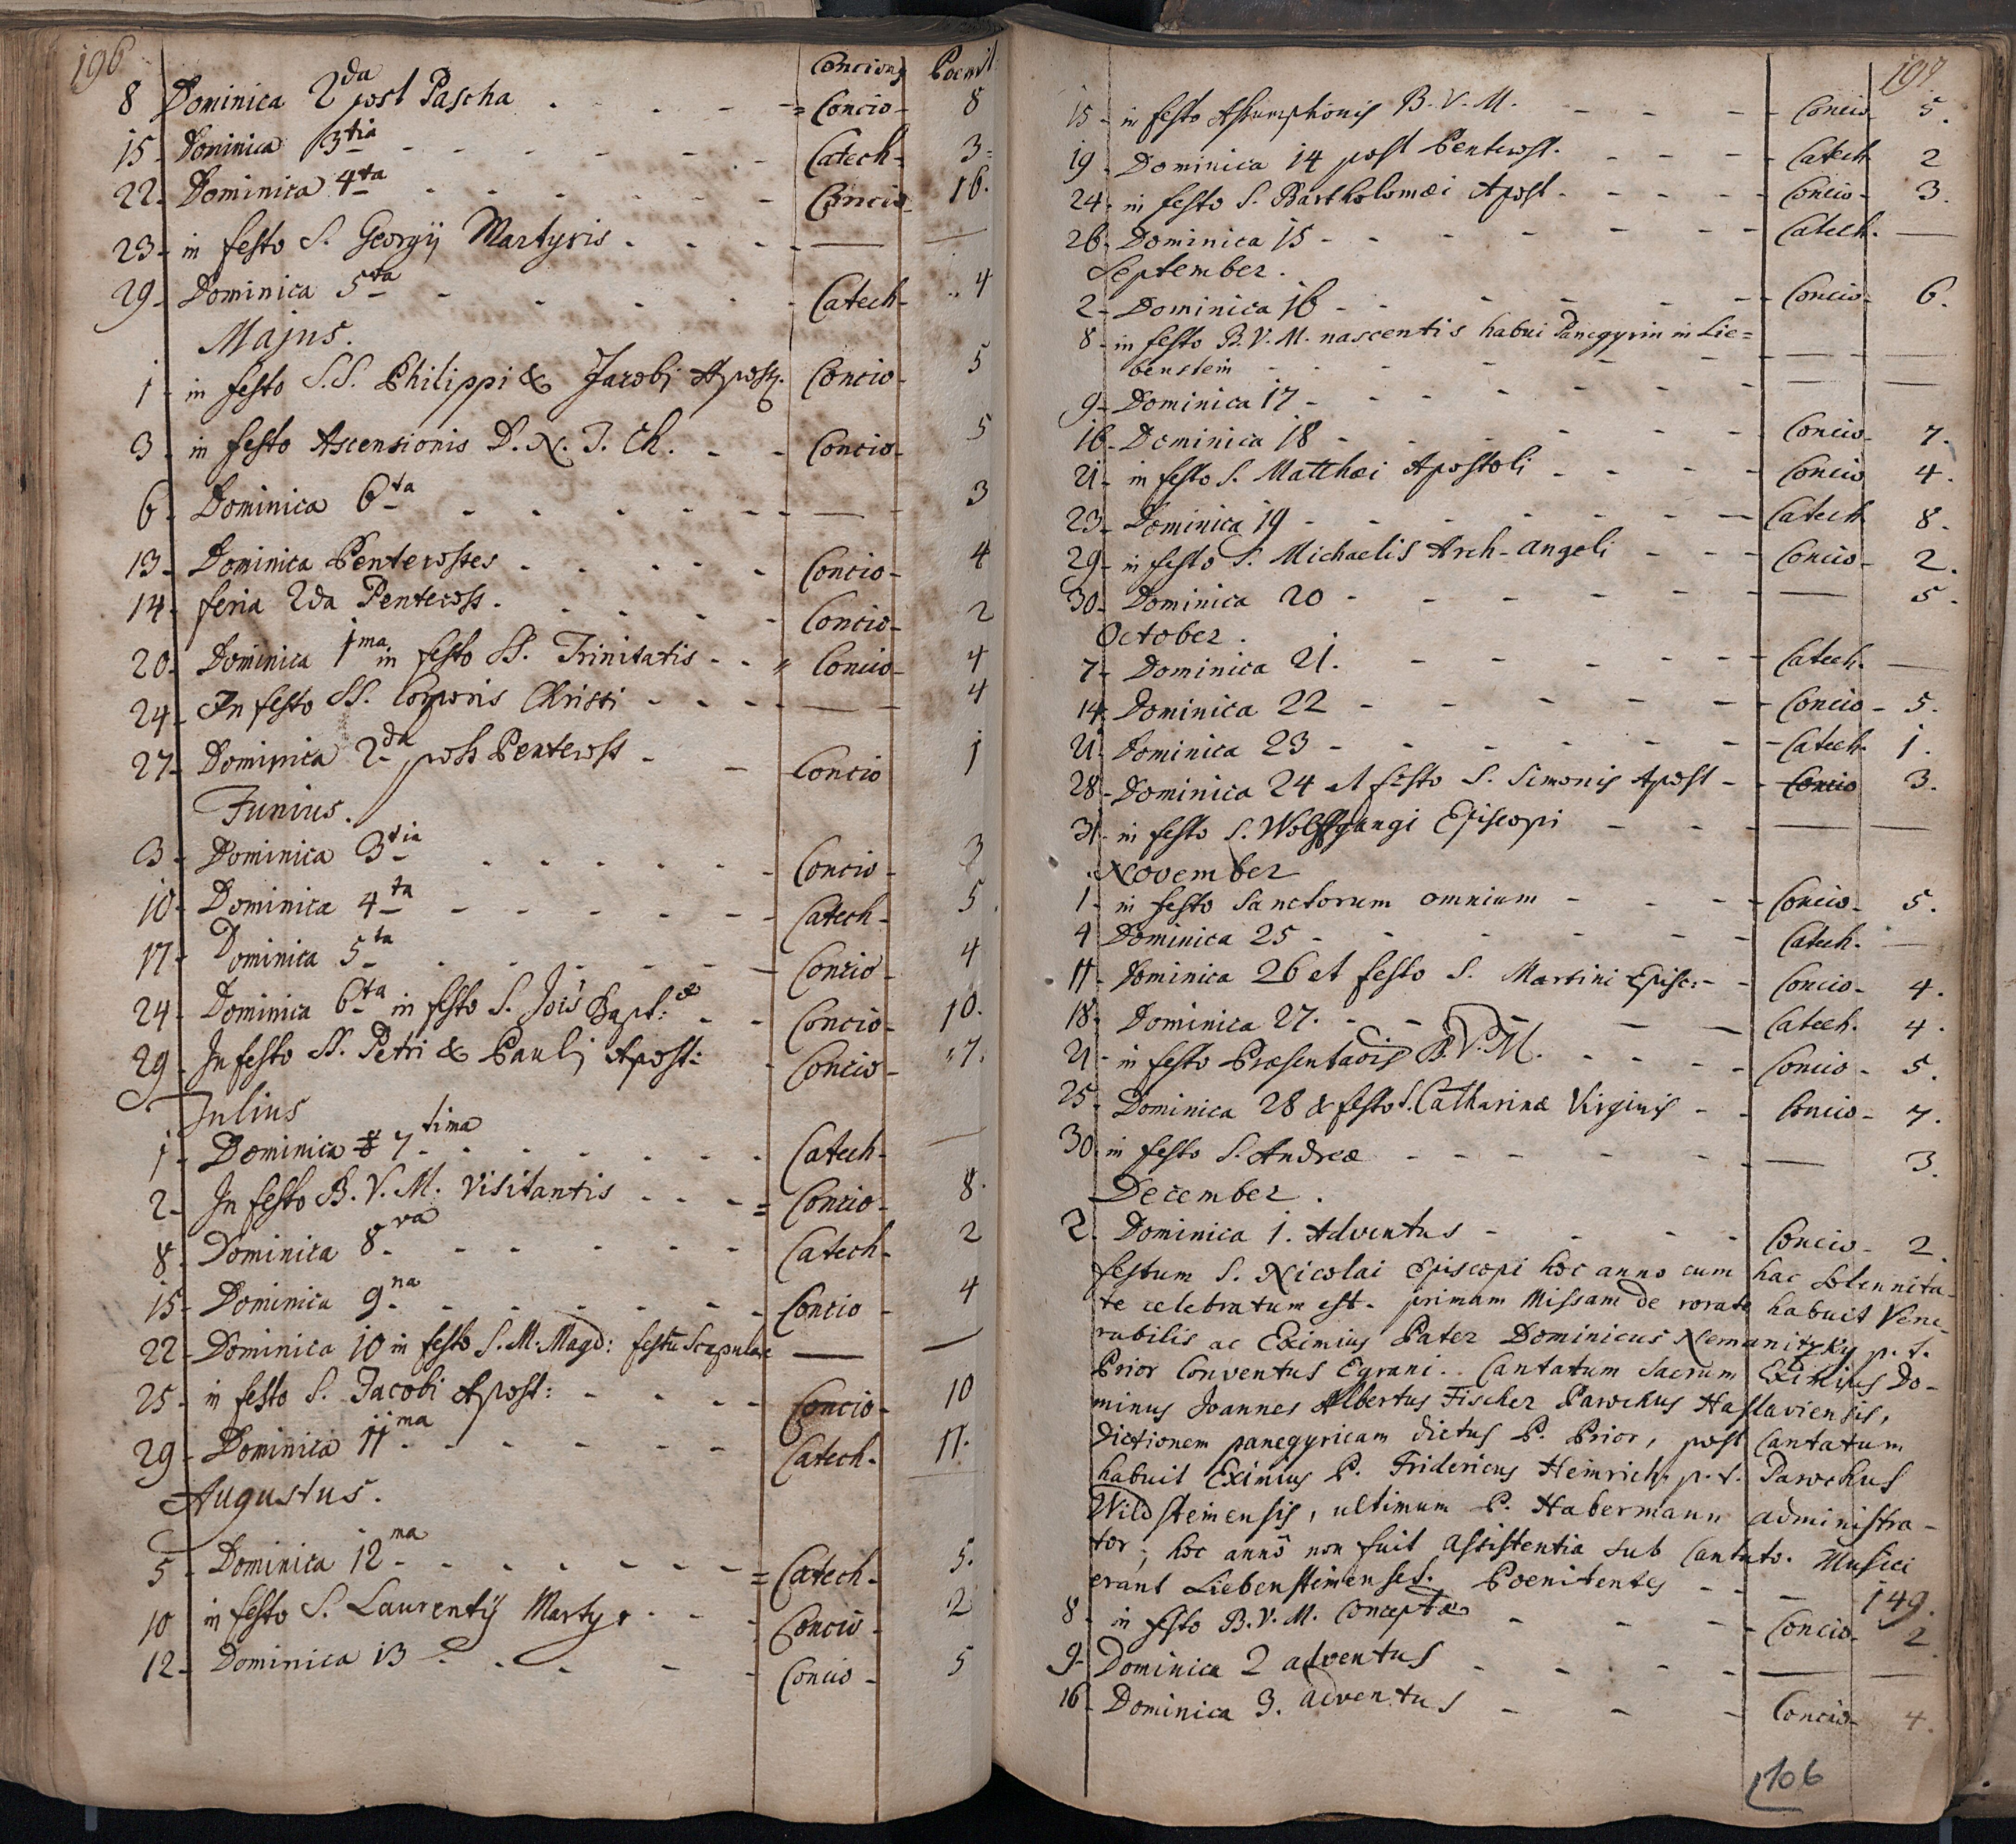 196
Conciones Poenit:
8 Dominica 2da post Pascha . . . - = Concio - 8
15 - Dominica 3tia - - - - - - Catech - 3 =
22 - Dominica 4ta - - - - - - Concio - 16.
23 - in festo S. Georgij Martyris . - - - — —
29 - Dominica 5ta - - - - - Catech - 4
Majus.
1 - in festo S.S. Philippi & Jacobi Apost. Concio - 5
3 - in festo Ascensionis D. N. J. Ch. - - Concio - 5
6 - Dominica 6ta - - - - - - — - 3
13 - Dominica Pentecostes - - - - - Concio - 4
14 - feria 2da Pentecost. - - - - Concio - 2
20 - Dominica 1ma in festo SS. Trinitatis - - " Concio - 4
24 - In festo SS. Corporis Christi - - - - — - 4
27 - Dominica 2da post Pentecost - - Concio 1
Junius.
3 - Dominica 3tia - - - - - - Concio - 3
10 - Dominica 4ta - - - - - - - Catech - 5
17 - Dominica 5ta - - - - - - Concio - 4
24 - Dominica 6ta in festo S. Jois Bapt:ae - - Concio - 10.
29 - In festo SS. Petri & Pauli Apost: - Concio - 7.
Julius
1 - Dominica 7tima - - - - - - Catech - —
2 - In festo B. V. M. Visitantis - - - = Concio - 8.
8 - Dominica 8va - - - - - - Catech - 2
15 - Dominica 9na - - - - - - Concio - 4
22 - Dominica 10 in festo S. M. Magd: festu Scapulare — —
25 - in festo S. Jacobi Apost: - - - - Concio - 10
29 - Dominica 11ma - - - - - - Catech - 11.
Augustus.
5 - Dominica 12ma - - - - - - = Catech - 5.
10 in festo S. Laurentij Martyr - - - Concio - 2
12 - Dominica 13 - - - - - Concio - 5
197
15 - in festo Assumptionis B. V. M. - - - - Concio - 5.
19 - Dominica 14 post Pentecost. - - - - Catech 2
24 - in festo S. Bartholomæi Apost - - - - - Concio - 3.
26 - Dominica 15 - - - - - - - Catech. —
September.
2 - Dominica 16 - - - - - - - Concio - 6.
8 - in festo B. V. M. nascentis habui Panegyrin in Lie=
benstein - - - - - - — —
9 - Dominica 17 - - - - - - — —
16 - Dominica 18 - - - - - - Concio - 7.
21 - in festo S. Matthæi Apostoli - - - - Concio 4.
23 - Dominica 19 - - - - - - - Catech 8.
29 - in festo S. Michaelis Arch-angeli - - - Concio - 2.
30 - Dominica 20 - - - - - - — 5.
October.
7 - Dominica 21. - - - - - - Catech. —
14 - Dominica 22 - - - - - - Concio - 5.
21 - Dominica 23 - - - - - - - Catech. 1.
28 - Dominica 24 et festo S. Simonis Apost - - Concio 3.
31 - in festo S. Wolffgangi Episcopi - - - — —
November
1 - in festo Sanctorum omnium - - - - Concio - 5.
4 Dominica 25 - - - - - - Catech. —
11 - Dominica 26 et festo S. Martini Episc: - - Concio - 4.
18 - Dominica 27. - - - - - Catech. 4.
21 - in festo Præsentaois B. V. M. - - - - Concio - 5.
25 - Dominica 28 & festo S. Catharinæ Virginis - - Concio - 7.
30 in festo S. Andreæ - - - - - - — 3.
December.
2. Dominica 1. Adventus - - - - Concio - 2.
festum S. Nicolai Episcopi hoc anno cum hac Solennita-
te celebratum est. primam Missam de rorate habuit Vene-
rabilis ac Eximius Pater Dominicus Nemanitzky p. t.
Prior Conventus Egrani. Cantatum Sacrum Eximius Do-
minus Joannes Albertus Fischer Parochus Haslaviensis,
Dictionem panegyricam dictus P. Prior, post Cantatum
habuit Eximius P. Fridericus Heinrich p. t. Parochus
Wildsteinensis, ultimum P. Habermann administra-
tor; hoc anno non fuit assistentia sub Cantato. Musici
erant Liebensteinenses. Poenitentes - - - 149.
8 - in festo B. V. M. Conceptæ - - - - Concio - 2
9 - Dominica 2 adventus - - - - - — —
16 - Dominica 3. adventus - - - Concio - 4.
106